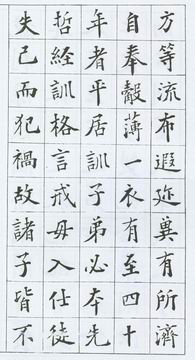 方等流布遐迩冀有所濟
自奉菲薄一衣有至四十
年者平居訓子弟必本先
哲經訓格言戒毋入仕徒
失己而犯禍故諸子皆不